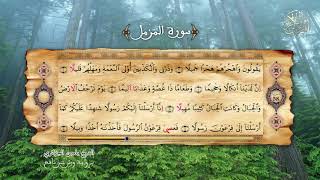 سورة المزمل
يقولون واهجرهم هجرا جميلا وذرني والمكذبين أولي النعمة ومهلهم قليلا
إن لدينا أنكالا وجحيما وطعاما ذا غصة وعذابا أليما يوم ترجف الأرض
والجبال وكانت الجبال كثيبا مهيلا إنا أرسلنا إليكم رسولا شاهدا عليكم كما
أرسلنا إلى فرعون رسولا فعصى فرعون الرسول فأخذناه أخذا وبيلا